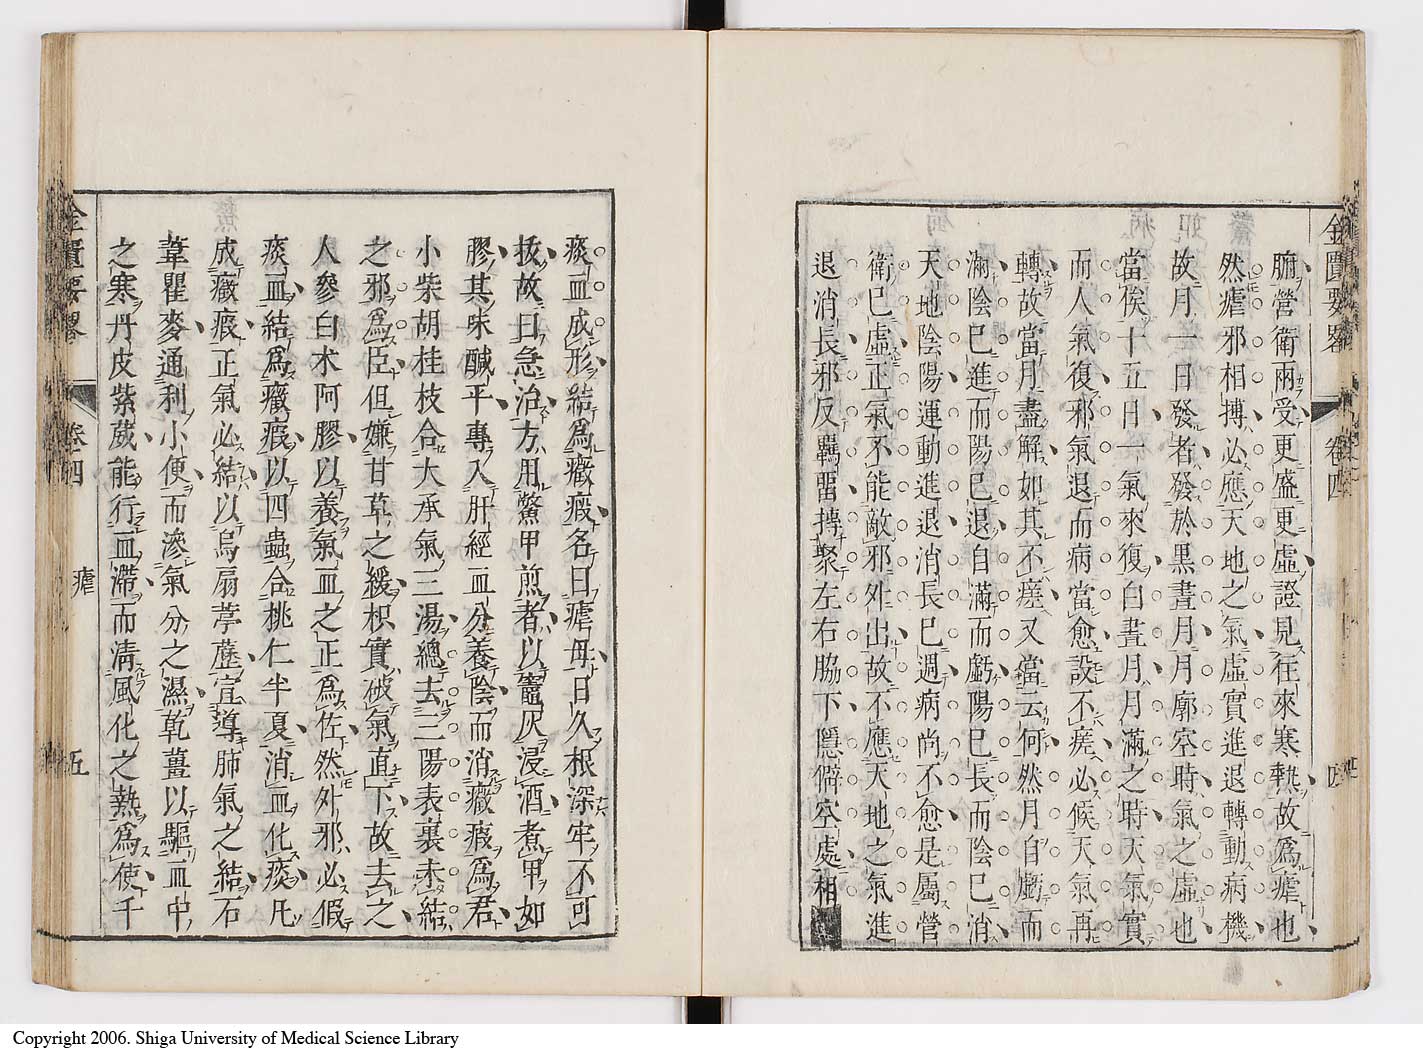 金匱要畧 卷四 四
腑營衛兩受更盛更虛證見往來寒熱故爲瘧也
然瘧邪相搏必應天地之氣虛實進退轉動病機
故月一日發者發於黑晝月月廓空時氣之虛也
當俟十五日一氣來復白晝月月滿之時天氣實
而人氣復邪氣退而病當愈設不瘥必候天氣再
轉故當月盡解如其不瘥又當云何然月自虧而
滿陰已進而陽已退自滿而虧陽已長而陰已消
天地陰陽運動進退消長已週病尚不愈是屬營
衛已虛正氣不能敵邪外出故不應天地之氣進
退消長邪反羈留摶聚左右脇下隱僻空處相
痰血成形結爲癥瘕名曰瘧母日久根深牢不可
拔故曰急治方用鱉甲煎者以竈灰浸酒煮甲如
膠其味醎平專入肝經血分養陰而消癥瘕爲君
小柴胡桂枝合大承氣三湯總去三陽表裏未結
之邪爲臣但嫌甘草之緩枳實破氣直下故去之
人參白朮阿膠以養氣血之正爲佐然外邪必假
痰血結爲癥瘕以四蟲合桃仁半夏消血化痰凡
成癥瘕正氣必結以烏扇葶藶宣導肺氣之結石
葦瞿麥通利小便而滲氣分之濕乾薑以驅血中
之寒丹皮紫葳能行血滯而淸風化之熱爲使千
金匱要畧 卷四 瘧 五
Copyright 2006. Shiga University of Medical Science Library